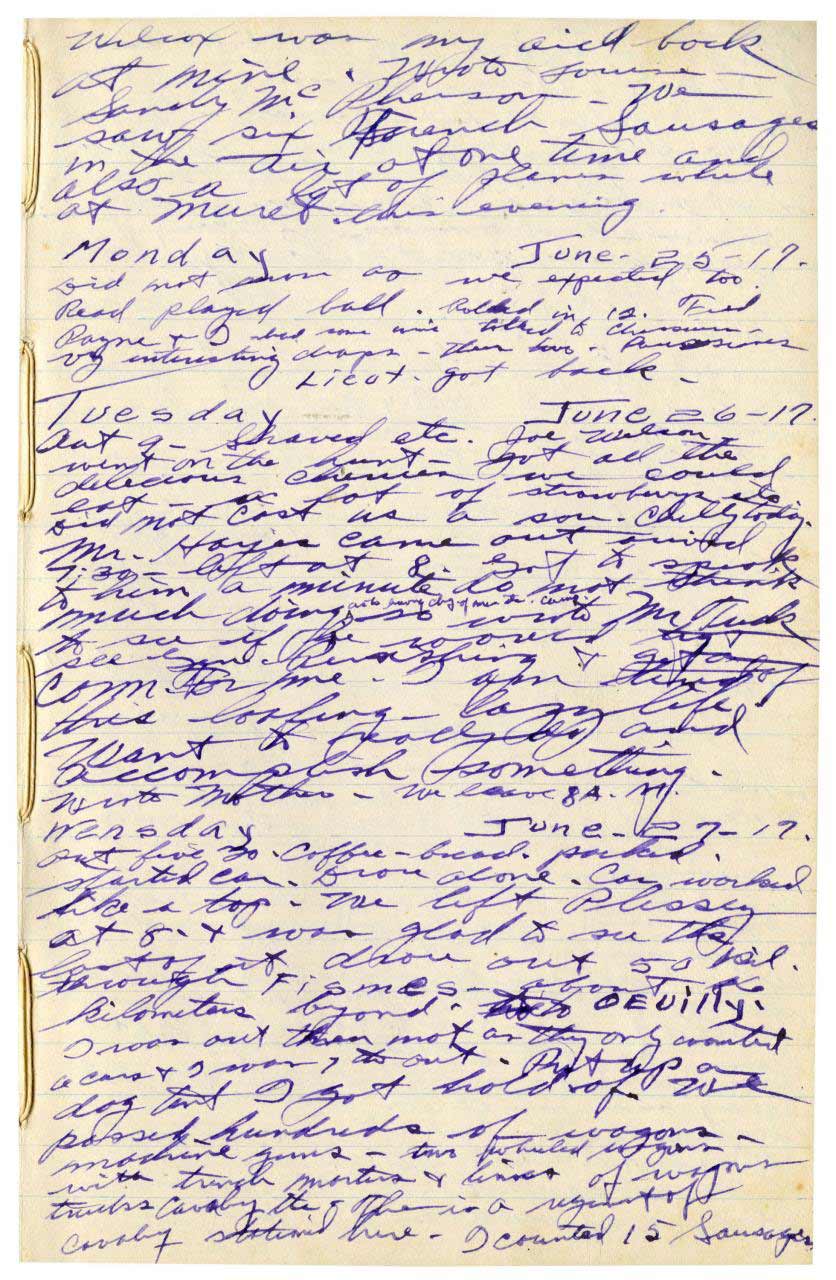 Wilcox was my aid back
at mine. Wrote Louise —
Sandy McPherson — We
saw six French Sausages
in the air at one time and
also a lot of planes while
at Muret this evening.
Monday June-25-17.
Did not move as we expected too.
Read played ball. Rolled in 12. Fred
Payne & I had some wine talked to
vy interesting chaps — then two
Licot. got back —
Tuesday June 26-17.
Out 9 — Shaved etc. Joe Wilson
went on the hunt — got all the
delicious cherries we could
eat — a lot of strawburys etc
Did not cost us a sou. Chilly today.
Mr. Hayes came out
7:30 — left at 8. Got to speak
to him a minute do not think
much doing so wrote Mr Tuck
to see if he would
see & get a
Com. for me. I am tired of
this loafing — lazy life.
Want to and
accomplish something.
Wrote Mother — We leave 8 A.M.
Wensday June-27-17.
Out five 30. Coffee — bread. packed.
started car. Drove alone. Car worked
like a top. We left Plessey
at 8 & was glad to see the
last of it drove out 50 kil.
through Fismes — about
kilometers beyond. to Oeuilly.
I was out then not as they only wanted
cars & I was out. Put up a
dog tent I got hold of. We
passed hundreds of wagons —
machine guns — two wheeled wagons
with trench mortars & lines of wagons
trucks Cavalry etc. There is a regiment of
cavalry stationed here — I counted 15 Sausages